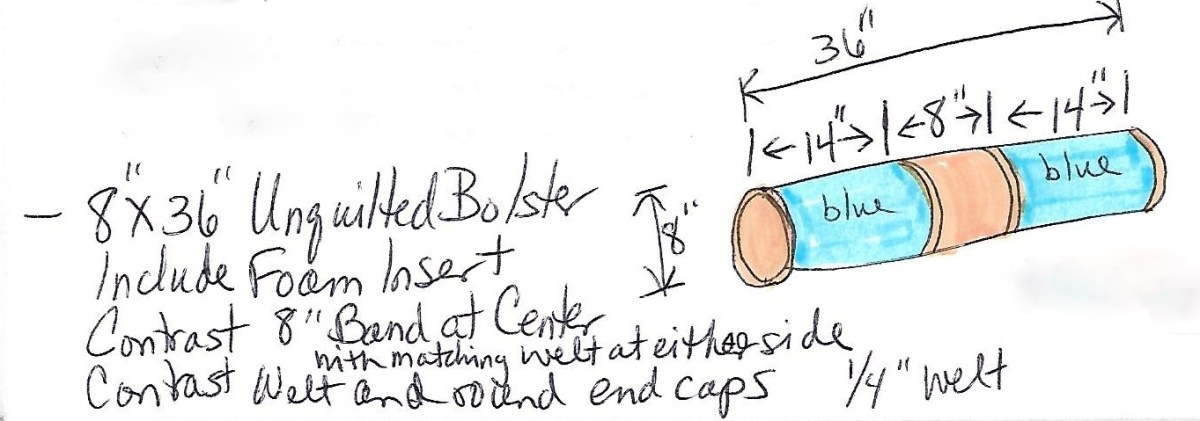 36"
14" 8" 14"
blue blue
8"
- 8" X 36" Unquilted Bolster
Include Foam Insert
Contrast 8" Band at Center
with matching welt at either side
Contrast Welt and round end caps 1/4" welt